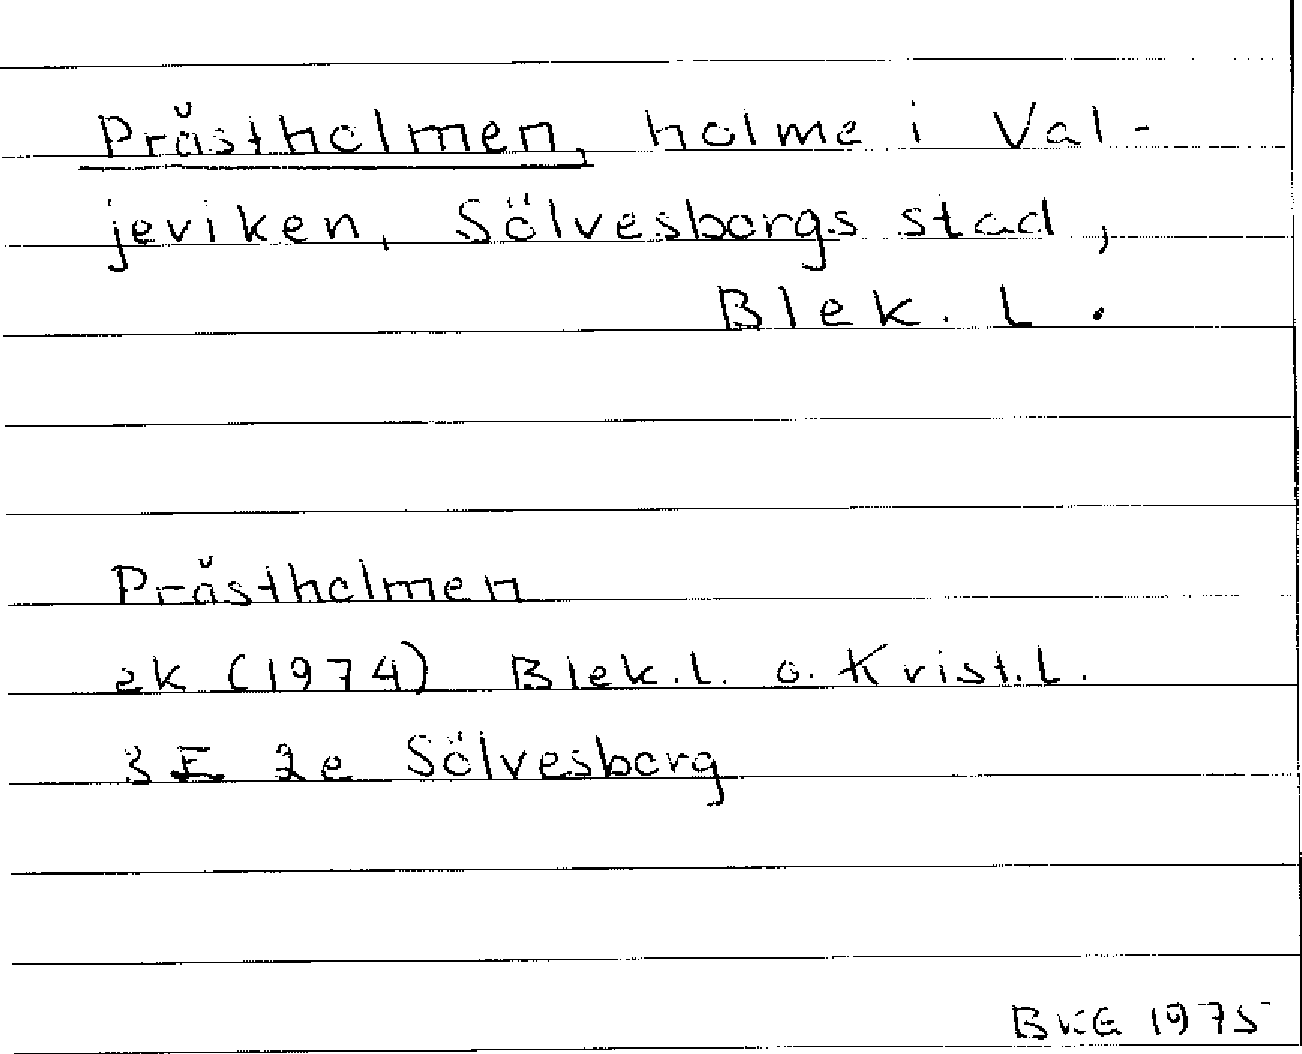 Prästholmen, holme i Val-
jeviken, Sölvesborgs stad,
Blek. L.
Prästholmen
ek (1974) Blek.l. o. Krist.l.
3 E 2e Sölvesborg
BKE 1975